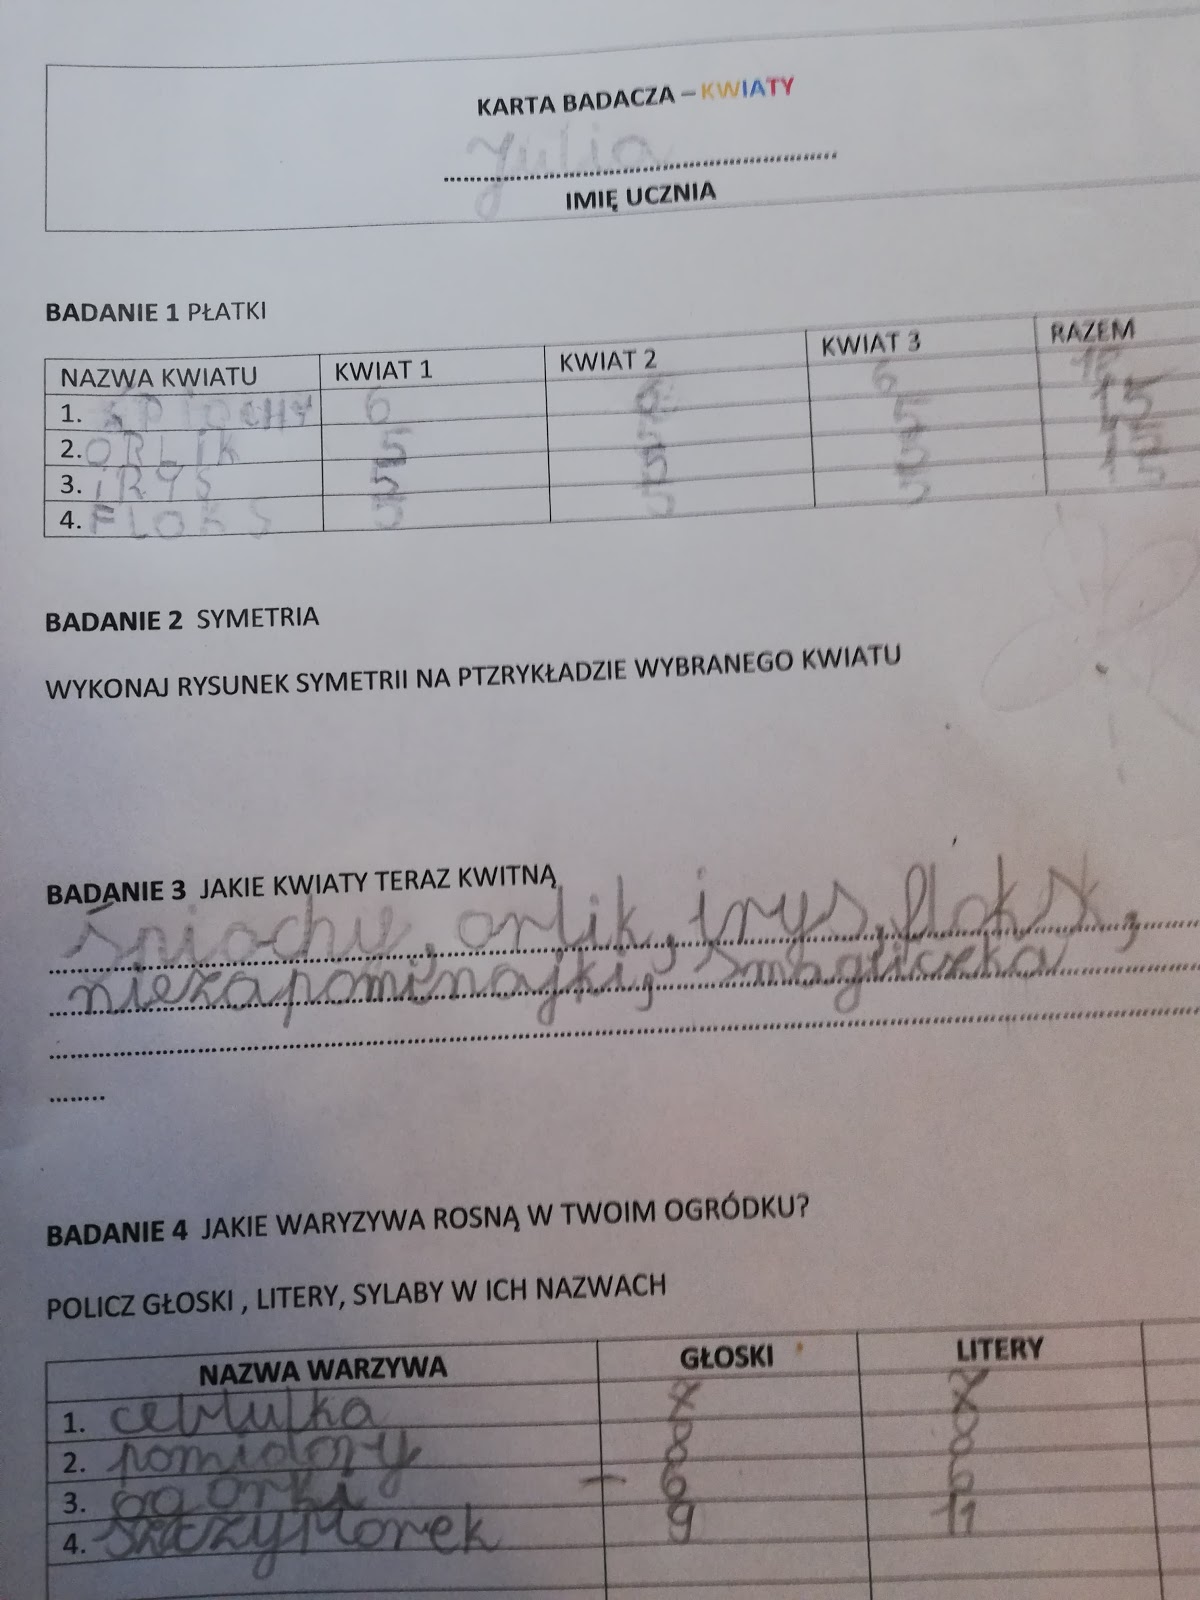 KARTA BADACZA – KWIATY
Julia
IMIĘ UCZNIA
BADANIE 1 PŁATKI
NAZWA KWIATU KWIAT 1 KWIAT 2 KWIAT 3 RAZEM
1. ŚPIOCHY 6 6 6
2. ORLIK 5 5 5 15
3. iRYS 5 5 5 15
4. FLOKS 5 5 5
BADANIE 2 SYMETRIA
WYKONAJ RYSUNEK SYMETRII NA PTZRYKŁADZIE WYBRANEGO KWIATU
BADANIE 3 JAKIE KWIATY TERAZ KWITNĄ
śpiochy, orlik, irys, floksk,
niezapominajki, smagliczka
BADANIE 4 JAKIE WARYZYWA ROSNĄ W TWOIM OGRÓDKU?
POLICZ GŁOSKI , LITERY, SYLABY W ICH NAZWACH
NAZWA WARZYWA GŁOSKI LITERY
1. cebulka 7 7
2. pomidory 8 8
3. ogórki 6 6
4. szczypiorek 9 11